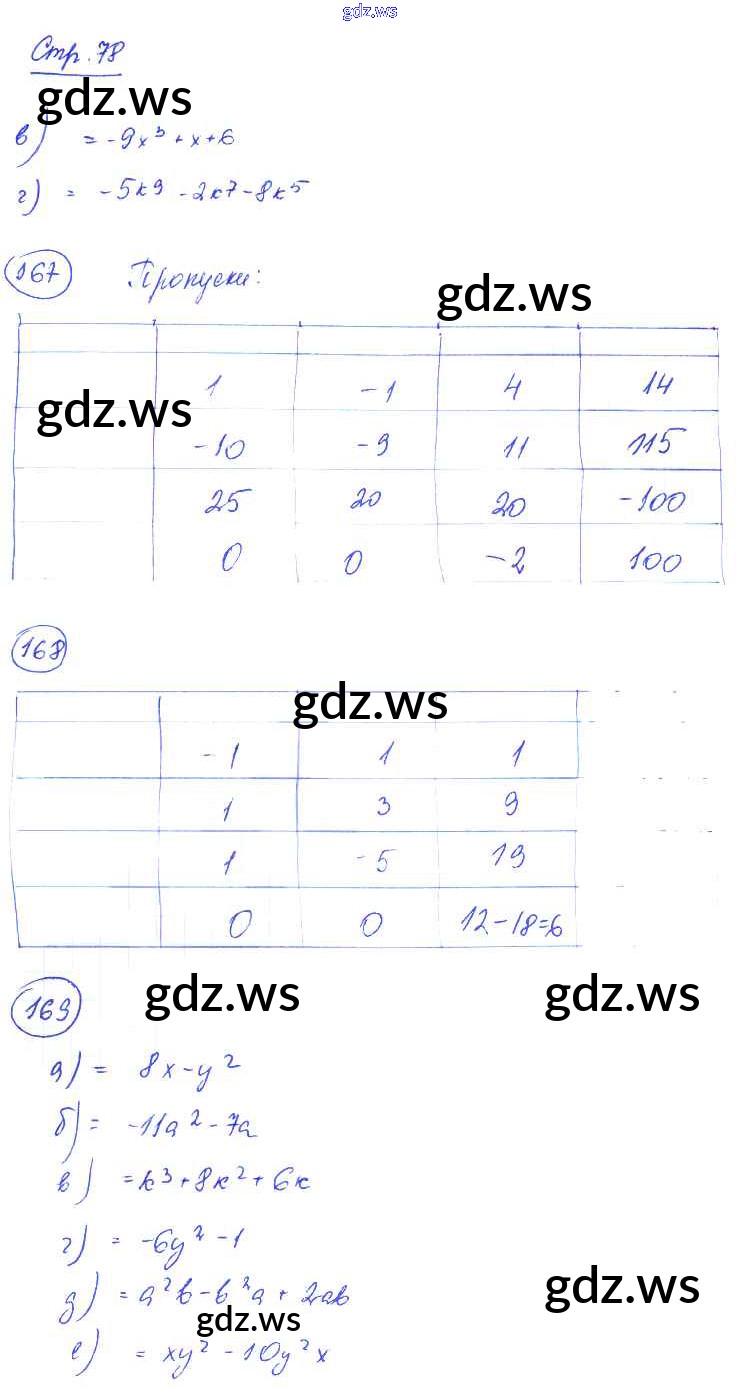 gdz.ws
Стр. 78
gdz.ws
в) = -9x³ + x + 6
г) = -5к9 - 2к7 - 8к⁵
167 Пропуски:
gdz.ws
1 -1 4 14
gdz.ws
-10 -9 11 115
25 20 20 -100
0 0 -2 100
168
gdz.ws
-1 1 1
1 3 9
1 -5 19
0 0 12-18=6
169
gdz.ws gdz.ws
а) = 8x - y²
б) = -11a² - 7a
в) = k³ + 8к² + 6к
г) = -6y² - 1
gdz.ws
д) = a²b - b²a + 2ab
gdz.ws
е) = xy² - 10y²x